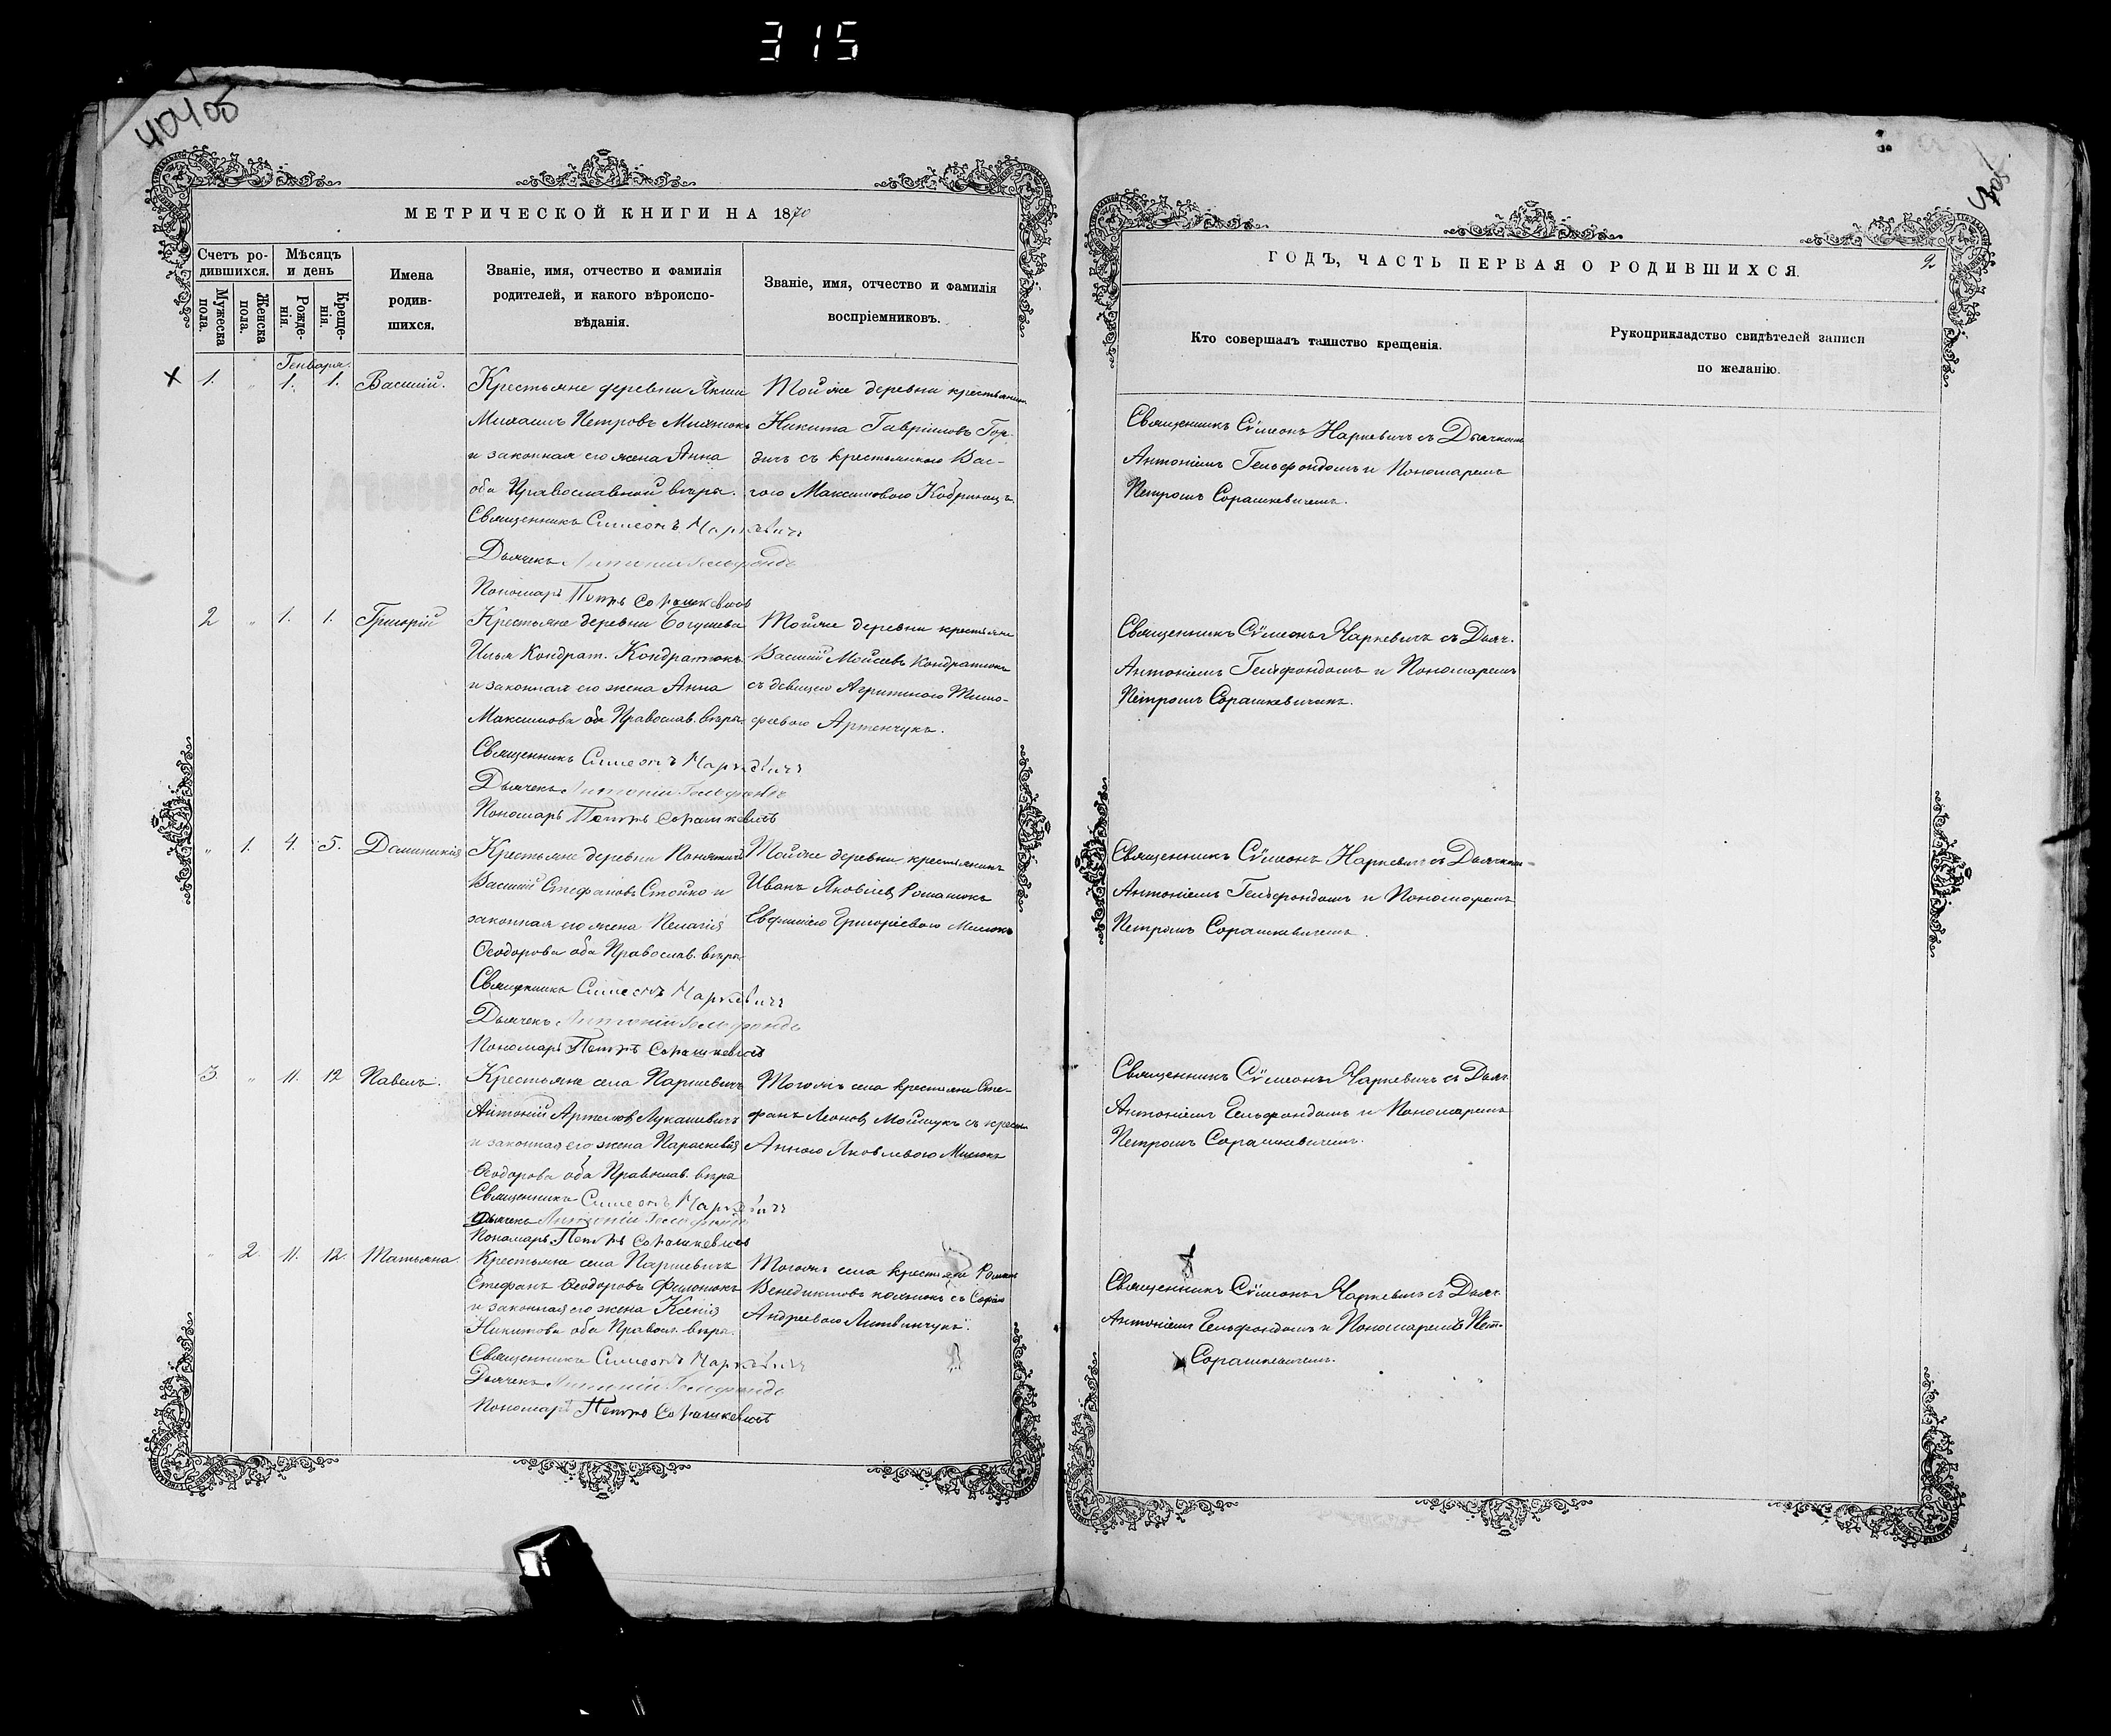 315
404 об
МЕТРИЧЕСКОЙ КНИГИ НА 1870
Счетъ ро-
дившихся.
Мѣсяцъ
и день
Мужеска
пола.
Женска
пола.
Рожде-
нія.
Креще-
нія.
Имена
родив-
шихся.
Званіе, имя, отчество и фамилія
родителей, и какого вѣроиспо-
вѣданія.
Званіе, имя, отчество и фамилія
воспріемниковъ.
Генваря.
1. " 1. 1. Василій.
Крестьяне деревни
Михаилъ Петровъ
и законная его жена Анна
оба Православной вѣры.
Священникъ Симеонъ Наркевичъ
Дьячекъ Антоній Гельфондъ
Пономарь Петръ Сорашкевичъ
Той же деревни крестьянинъ
Никита Гавріиловъ Гор-
дичъ съ крестьянкою Вас-
сою Максимовою
2 " 1. 1. Григорій
Крестьяне деревни Богушева
Илья Кондрат. Кондратюкъ
и законная его жена Анна
Максимова оба Православ. вѣры
Священникъ Симеонъ Наркевичъ
Дьячекъ Антоній Гельфондъ
Пономарь Петръ Сорашкевичъ
Той же деревни крестьяне
Василій Моисеевъ Кондратюкъ
съ дѣвицею Тимо-
феевою Артемчукъ.
" 1. 4. 5. Доминикія
Крестьяне деревни
Василій Стефановъ Стойко и
законная его жена Пелагія
Ѳеодорова оба Православ. вѣры
Священникъ Симеонъ Наркевичъ
Дьячекъ Антоній Гельфондъ
Пономарь Петръ Сорашкевичъ
Той же деревни крестьянинъ
Иванъ Яковлевъ Романюкъ
Евфиміею Григоріевою
3. " 11. 12 Павелъ.
Крестьяне села Паршевичъ
Антоній Артемовъ Лукашевичъ
и законная его жена Параскевія
Ѳеодорова оба Православ. вѣры
Священникъ Симеонъ Наркевичъ
Дьячекъ Антоній Гельфондъ
Пономарь Петръ Сорашкевичъ
Того жъ села крестьяне Сте-
фанъ Леоновъ съ крест.
Анною Яковлевою
" 2. 11. 12. Татьяна.
Крестьяне села Паршевичъ
Стефанъ Ѳеодоровъ Филонюкъ
и законная его жена Ксенія
Никитова оба Правосл. вѣры.
Священникъ Симеонъ Наркевичъ
Дьячекъ Антоній Гельфондъ
Пономарь Петръ Сорашкевичъ
Того жъ села крестьяне Романъ
Венедиктовъ съ Софіею
Андреевою Литвинчукъ.
ГОДЪ, ЧАСТЬ ПЕРВАЯ О РОДИВШИХСЯ.
2
Кто совершалъ таинство крещенія.
Рукоприкладство свидѣтелей записи
по желанію.
Священникъ Сѵмеонъ Наркевичъ съ Дьячкомъ
Антоніемъ Гельфондомъ и Пономаремъ
Петромъ Сорашкевичемъ.
Священникъ Сѵмеонъ Наркевичъ съ Дьяч.
Антоніемъ Гельфондомъ и Пономаремъ
Петромъ Сорашкевичемъ.
Священникъ Сѵмеонъ Наркевичъ съ Дьячкомъ
Антоніемъ Гельфондомъ и Пономаремъ
Петромъ Сорашкевичемъ.
Священникъ Сѵмеонъ Наркевичъ съ Дьяч.
Антоніемъ Гельфондомъ и Пономаремъ
Петромъ Сорашкевичемъ.
Священникъ Сѵмеонъ Наркевичъ съ Дьяч.
Антоніемъ Гельфондомъ и Пономаремъ Пет.
Сорашкевичемъ.